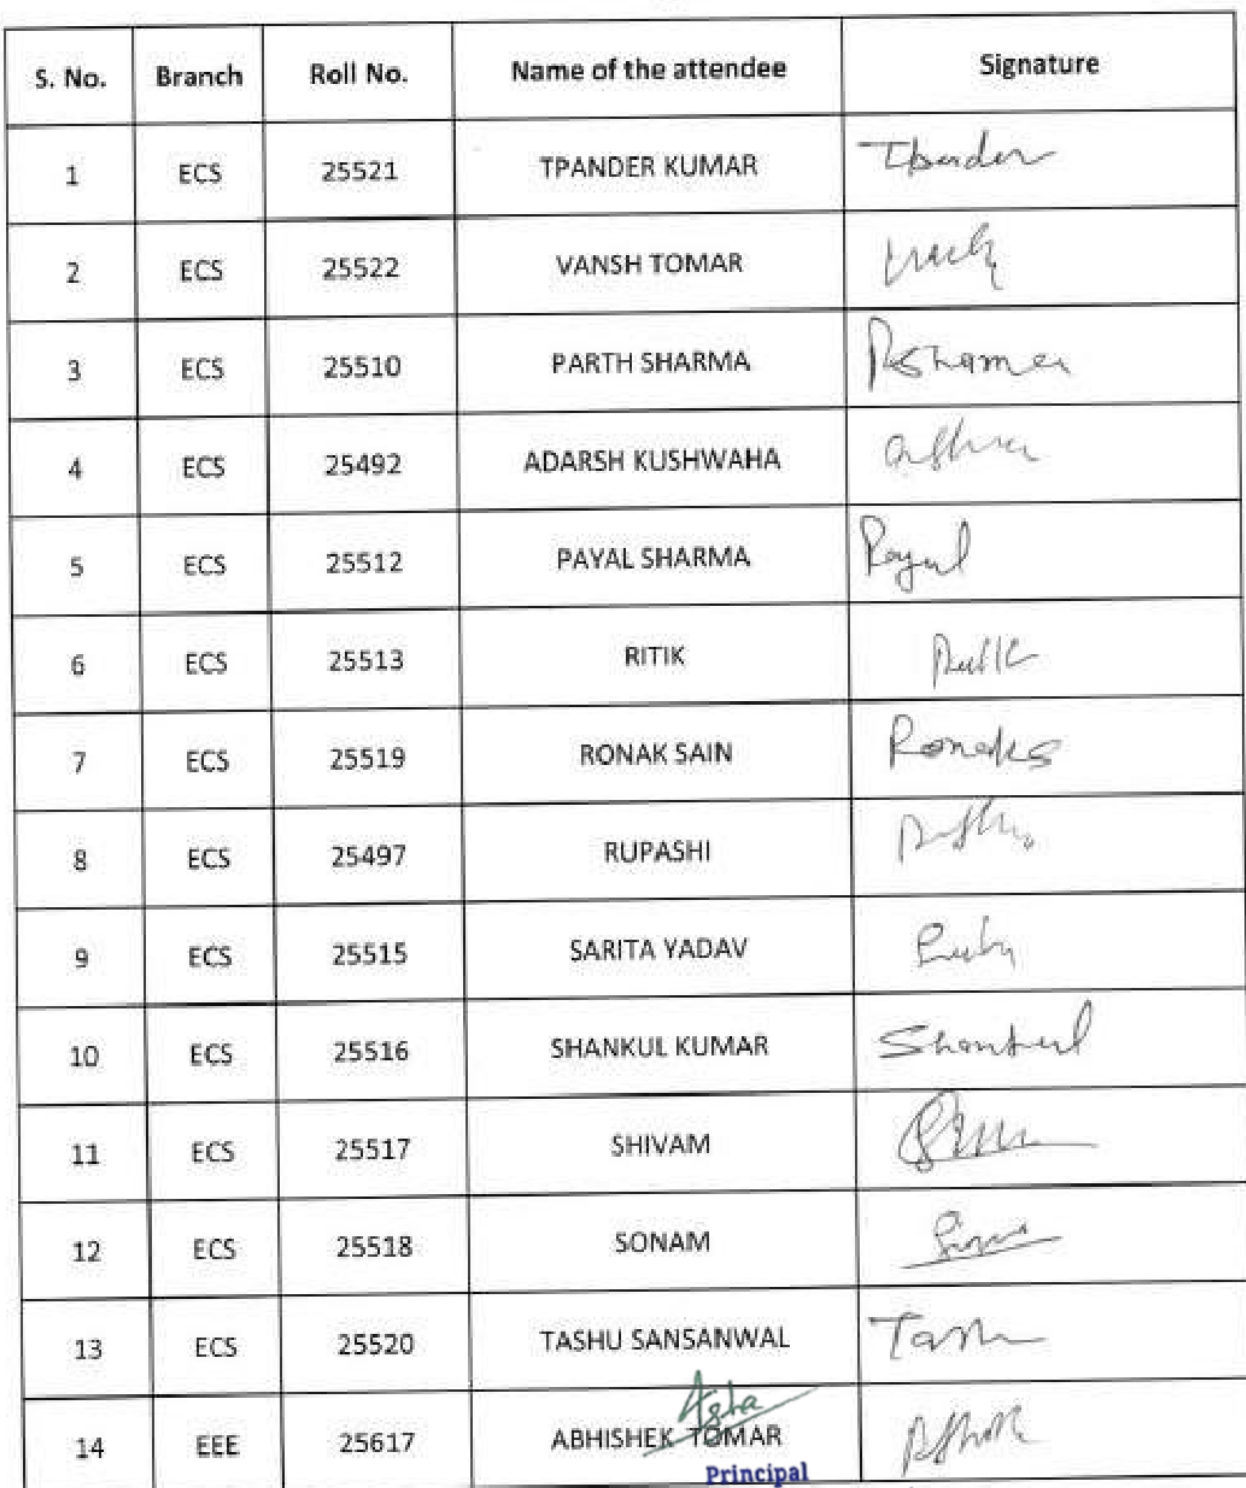 S. No. Branch Roll No. Name of the attendee Signature
1 ECS 25521 TPANDER KUMAR Tpander
2 ECS 25522 VANSH TOMAR
3 ECS 25510 PARTH SHARMA
4 ECS 25492 ADARSH KUSHWAHA
5 ECS 25512 PAYAL SHARMA Payal
6 ECS 25513 RITIK
7 ECS 25519 RONAK SAIN Ronaks
8 ECS 25497 RUPASHI
9 ECS 25515 SARITA YADAV
10 ECS 25516 SHANKUL KUMAR Shankul
11 ECS 25517 SHIVAM
12 ECS 25518 SONAM
13 ECS 25520 TASHU SANSANWAL
14 EEE 25617 ABHISHEK TOMAR
Principal